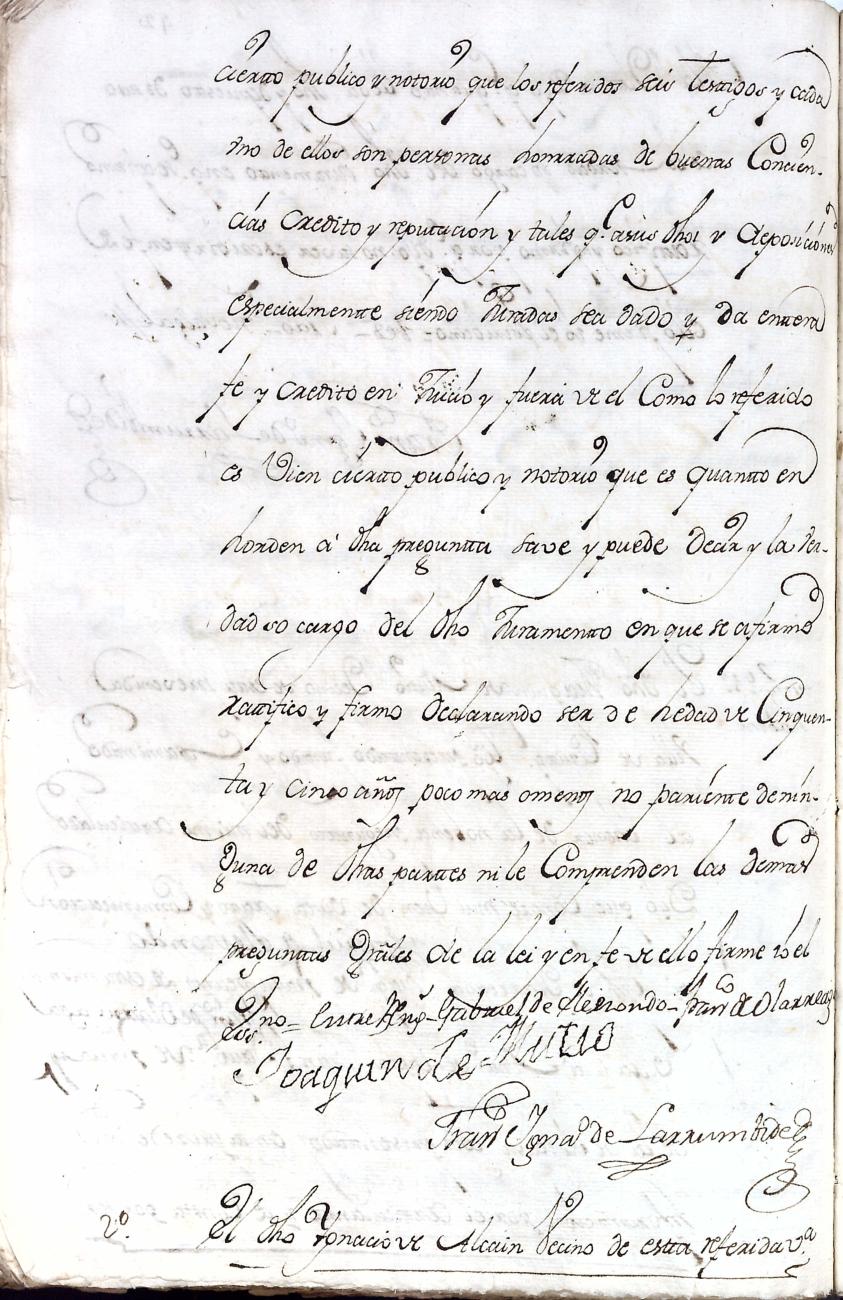 cierto publico y notorio que los referidos seis testigos y cada
uno de ellos son personas honrradas de buenas Concien-
cias Credito y reputacion y tales q.e a sus dhos y deposiciones
especialmentte siendo Juradas se a dado y da enttera
fe y credito en Juicio y fuera de el Como lo referido
es Vien ciertto publico y nottorio que es quantto en
horden a dha pregunta save y puede decir y la ver-
dad so cargo del dho Juramentto en que se afirmo
rattifico y firmo declarando ser de hedad de Cinquen-
ta y cinco años poco mas o menos no pariente de nin-
guna de dhas parttes ni le Comprenden las demas
pregunttas grâles de la lei y en fe de ello firme io el
ess.no = Entre Rng.s Gabriel de Fran.co de Olarreaga
Joaquin de Mutio
Fran.co Igna.o de Larrumbide
2.º El dho Ignacio de Alcain Vecino de estta referida v.a